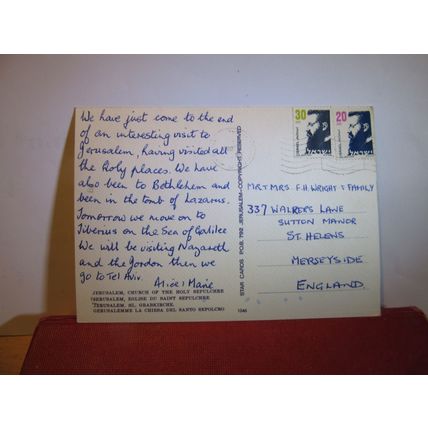 We have just come to the end
of an interesting visit to
Jerusalem, having visited all
the Holy places. We have
also been to Bethlehem and
been in the tomb of Lazarus.
Tomorrow we move on to
Tiberius on the Sea of Galilee
We will be visiting Nazareth
and the Jordon then we
go to Tel Aviv.
JERUSALEM, CHURCH OF THE HOLY SEPULCHRE
JERUSALEM, EGLISE DU SAINT SEPULCHRE
JERUSALEM, HL. GRABKIRCHE
GERUSALEMME LA CHIESA DEL SANTO SEPOLCRO
1046
STAR CARDS P.O.B. 7192 JERUSALEM-COPYRIGHT. RESERVED
30
20
ישראל
ישראל
MR & MRS F.H. WRIGHT & FAMILY
337 WALKERS LANE
SUTTON MANOR
ST. HELENS
MERSEYSIDE
ENGLAND